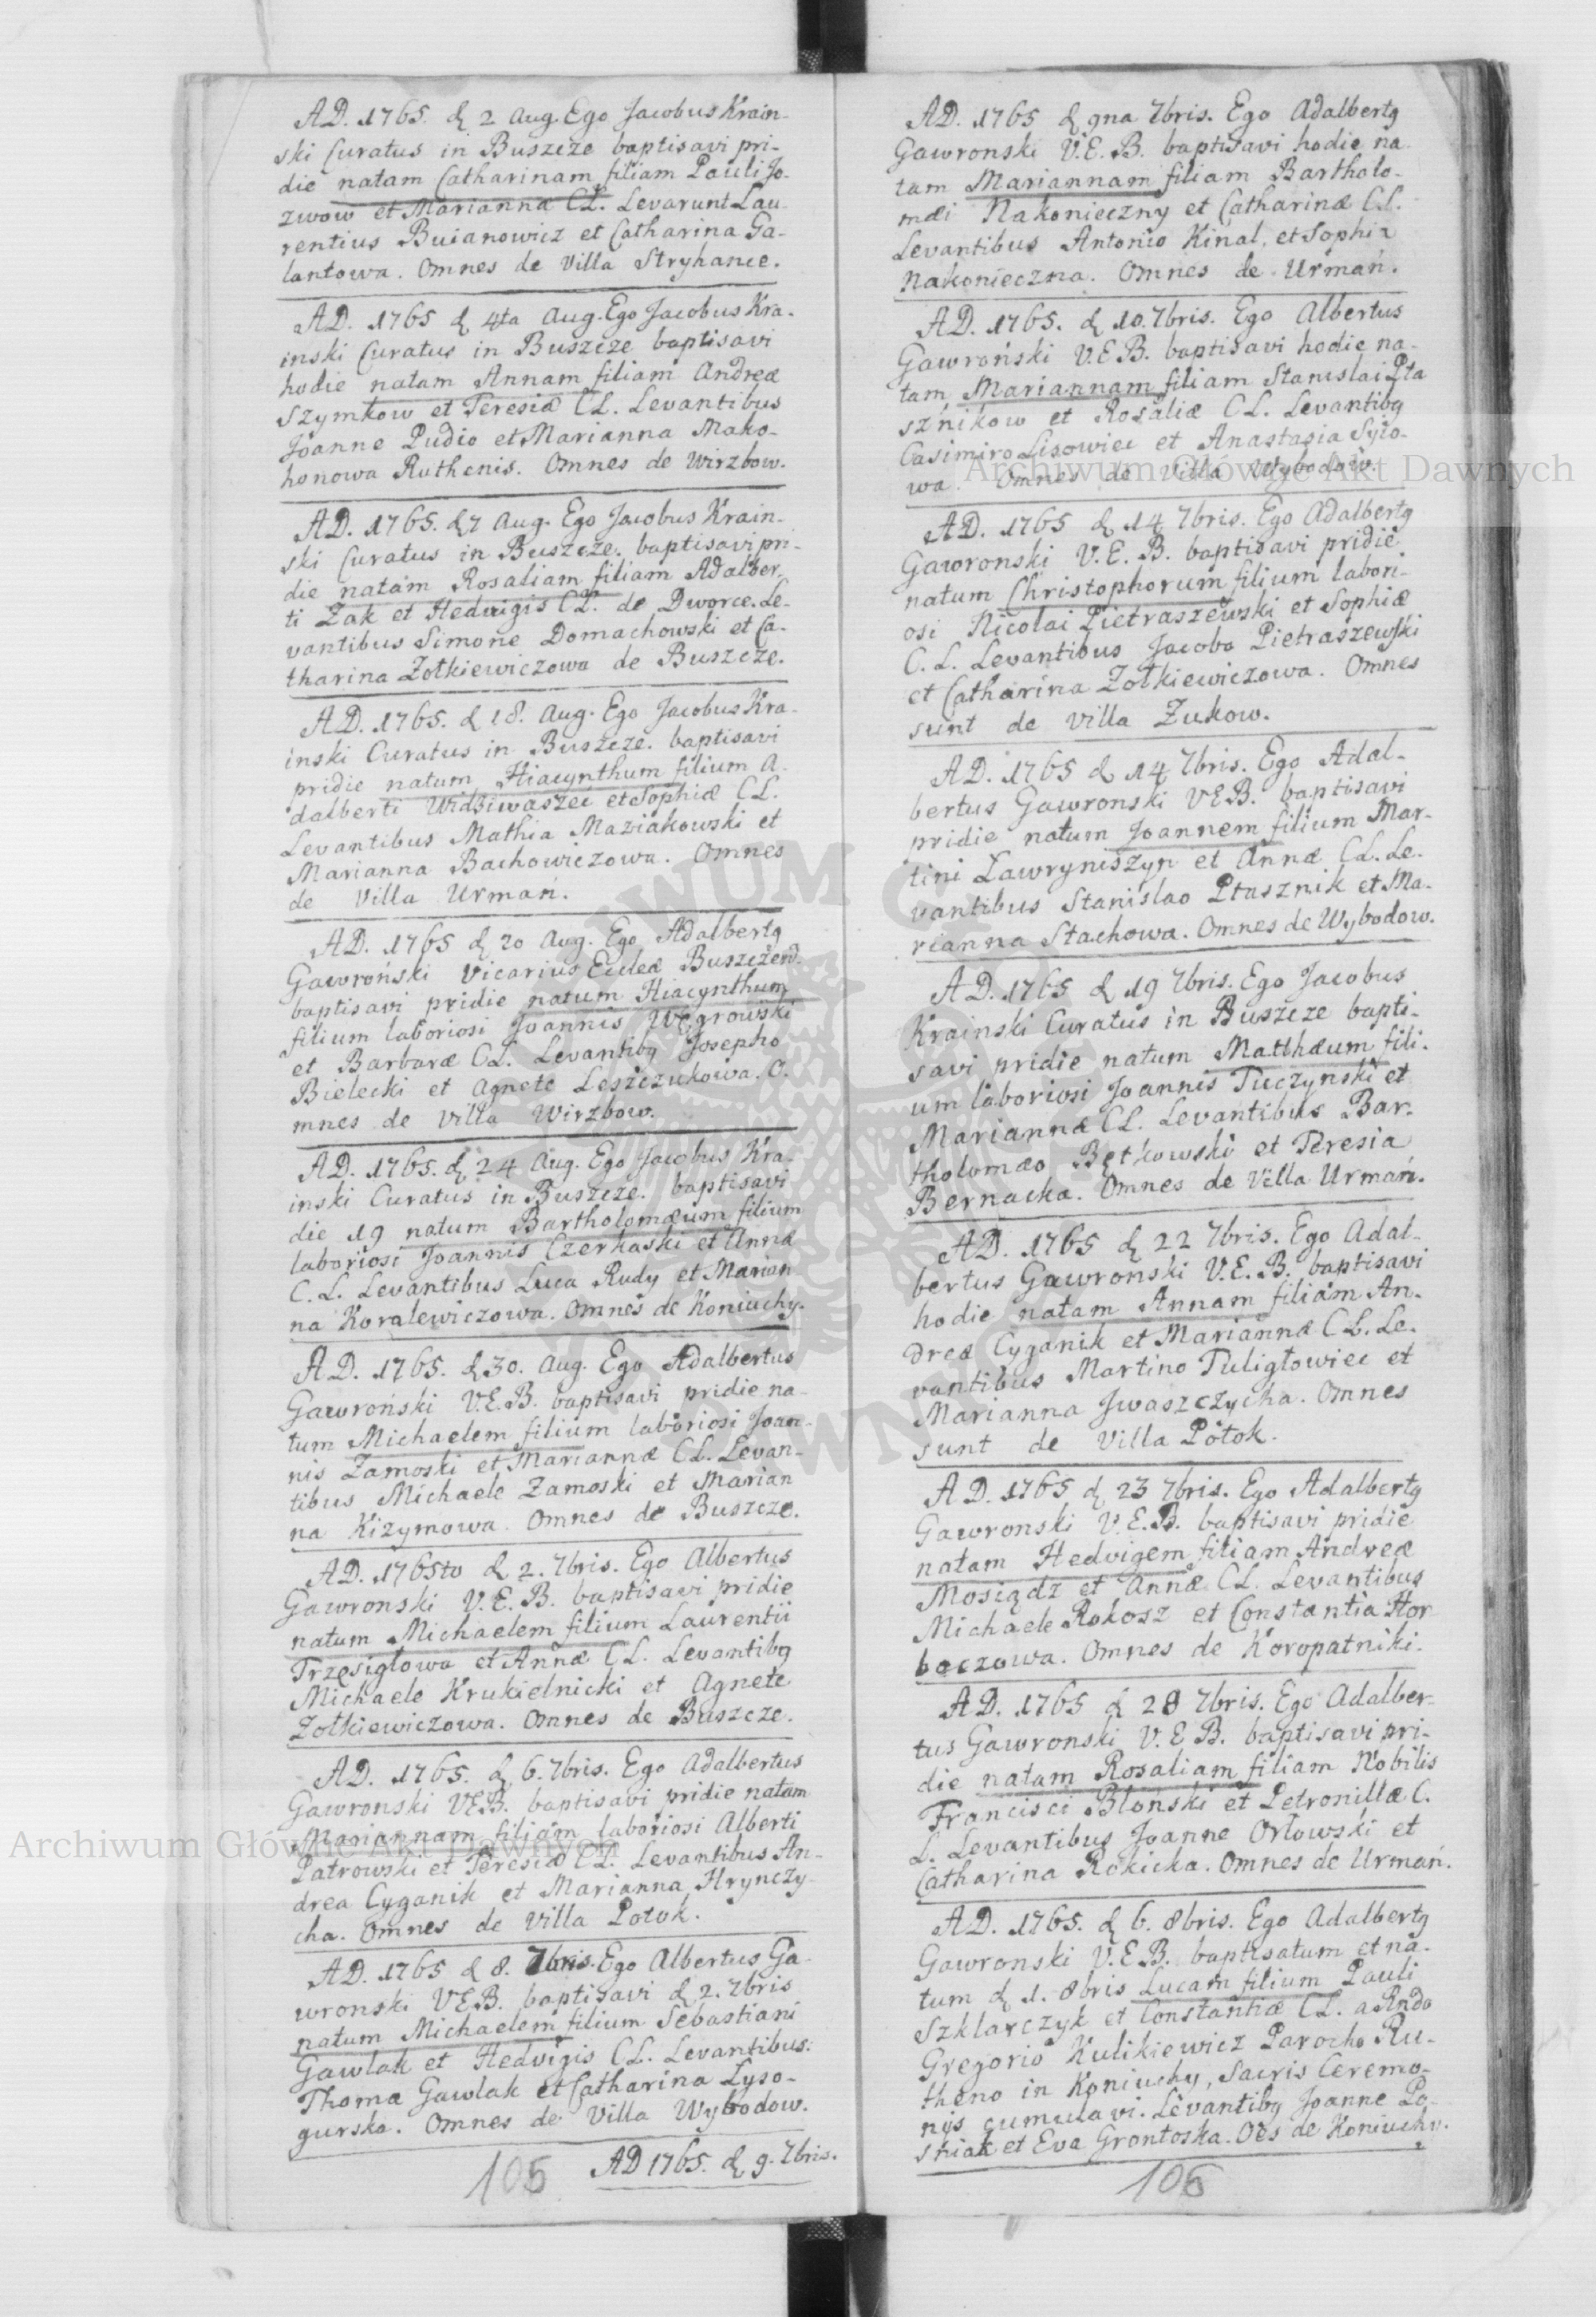 AD. 1765. d 2 Aug. Ego Jacobus Krain-
ski Curatus in Buszcze baptisavi pri-
die natam Catharinam filiam Pauli Jo-
zwow et Mariannæ CL. Levarunt Lau-
rentius Buianowicz et Catharina Ga-
lantowa. Omnes de Villa Stryhance.
AD. 1765 d 4ta Aug. Ego Jacobus Kra-
inski Curatus in Buszcze baptisavi
hodie natam Annam filiam Andreæ
Szymkow et Teresiæ CL. Levantibus
Joanne Pudio et Marianna Mako-
honowa Ruthenis. Omnes de Wirzbow.
AD. 1765. d 7 Aug. Ego Jacobus Krain-
ski Curatus in Buszcze. baptisavi pri-
die natam Rosaliam filiam Adalber-
ti Zak et Hedvigis CL. de Dworce. Le-
vantibus Simone Domachowski et Ca-
tharina Zołkiewiczowa de Buszcze.
AD. 1765. d 18. Aug. Ego Jacobus Kra-
inski Curatus in Buszcze. baptisavi
pridie natum Hiacynthum filium A-
dalberti Widziwaszec et Sophiæ CL.
Levantibus Mathia Maziakowski et
Marianna Bachowiczowa. Omnes
de Villa Urmań.
AD. 1765 d 20 Aug. Ego Adalbertq
Gawroński Vicarius Eccleæ Buszczend.
baptisavi pridie natum Hiacynthum
filium laboriosi Joannis Węgrowski
et Barbaræ CL. Levantibq Josepho
Bielecki et Agnete Leszczukowa. O-
mnes de Villa Wirzbow.
AD. 1765. d 24 Aug. Ego Jacobus Kra-
inski Curatus in Buszcze. baptisavi
die 19 natum Bartholomæum filium
laboriosi Joannis Czerkaski et Annæ
C. L. Levantibus Luca Rudy et Marian
na Koralewiczowa. Omnes de Koniuchy.
AD. 1765. d 30. Aug. Ego Adalbertus
Gawroński V.E.B. baptisavi pridie na-
tum Michaelem filium laboriosi Joan-
nis Zamoski et Mariannæ CL. Levan-
tibus Michaele Zamoski et Marian
na Kizymowa. Omnes de Buszcze.
AD. 1765to d 2. 7bris. Ego Albertus
Gawronski V.E.B. baptisavi pridie
natum Michaelem filium Laurentii
Trzęsigłowa et Annæ CL. Levantibq
Michaele Krukielnicki et Agnete
Zołkiewiczowa. Omnes de Buszcze.
AD. 1765. d 6. 7bris. Ego Adalbertus
Gawronski VEB. baptisavi pridie natam
Mariannam filiam laboriosi Alberti
Patrowski et Teresiæ CL. Levantibus An-
drea Cyganik et Marianna Hrynczy-
cha. Omnes de Villa Potok.
AD. 1765 d 8. 7bris. Ego Albertus Ga-
wronski VEB. baptisavi d 2. 7bris
natum Michaelem filium Sebastiani
Gawlak et Hedvigis CL. Levantibus.
Thoma Gawlak et Catharina Lyso-
gurska. Omnes de Villa Wybodow.
AD 1765. d 9. 7bris.
105
AD. 1765 d 9na 7bris. Ego Adalbertq
Gawronski V.E.B. baptisavi hodie na
tam Mariannam filiam Bartholo-
mæi Nakonieczny et Catharinæ CL.
Levantibus Antonio Kinal, et Sophia
Nakonieczna. Omnes de Urmań.
AD. 1765. d 10. 7bris. Ego Albertus
Gawroński V.E.B. baptisavi hodie na-
tam Mariannam filiam Stanislai Pta
sznikow et Rosaliæ CL. Levantibq
Casimiro Lisowiec et Anastasia Syzo-
wa. Omnes de Villa Wybodow.
AD. 1765 d 14 7bris. Ego Adalbertq
Gawronski V.E.B. baptisavi pridie
natum Christophorum filium labori-
osi Nicolai Pietraszewski et Sophiæ
C. L. Levantibus Jacobo Pietraszewski
et Catharina Zołkiewiczowa. Omnes
sunt de Villa Zukow.
AD. 1765 d 14 7bris. Ego Adal-
bertus Gawronski VEB. baptisavi
pridie natum Joannem filium Mar-
tini Lawryniszyn et Annæ CL. Le-
vantibus Stanislao Ptasznik et Ma-
rianna Stachowa. Omnes de Wybodow.
AD. 1765 d 19 7bris. Ego Jacobus
Krainski Curatus in Buszcze bapti-
savi pridie natum Matthæum fili-
um laboriosi Joannis Tuczynski et
Mariannæ CL. Levantibus Bar-
tholomæo Bętkowski et Teresia
Bernacka. Omnes de Villa Urmań.
AD. 1765 d 22 7bris. Ego Adal-
bertus Gawronski V.E.B. baptisavi
hodie natam Annam filiam An-
dreæ Cyganik et Mariannæ CL. Le-
vantibus Martino Tuligłowiec et
Marianna Jwaszczycha. Omnes
sunt de Villa Potok.
AD. 1765 d 23 7bris. Ego Adalbertq
Gawronski V.E.B. baptisavi pridie
natam Hedvigem filiam Andreæ
Mosiądz et Annæ CL. Levantibus
Michaele Rokosz et Constantia Hor
baczowa. Omnes de Koropatniki.
AD. 1765 d 28 7bris. Ego Adalber-
tus Gawronski V.E.B. baptisavi pri-
die natam Rosaliam filiam Nobilis
Francisci Błonski et Petronillæ C.
L. Levantibus Joanne Orłowski et
Catharina Rokicka. Omnes de Urmań.
AD. 1765. d 6. 8bris. Ego Adalbertq
Gawronski V.E.B. baptisatum et na-
tum d 1. 8bris Lucam filium Pauli
Szklarczyk et Constantiæ CL. a Rndo
Gregorio Kulikiewicz Parocho Ru-
theno in Koniuchy, Sacris Ceremo-
nijs cumulavi. Levantibq Joanne Po-
sniak et Eva Grontoska. Oes de Koniuchy.
106
Archiwum Główne Akt Dawnych
Archiwum Główne Akt Dawnych